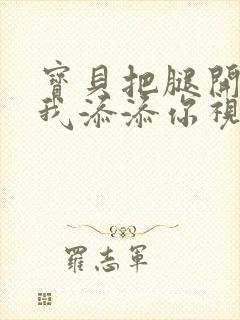 寶貝把腿開
我添添你視
羅志軍